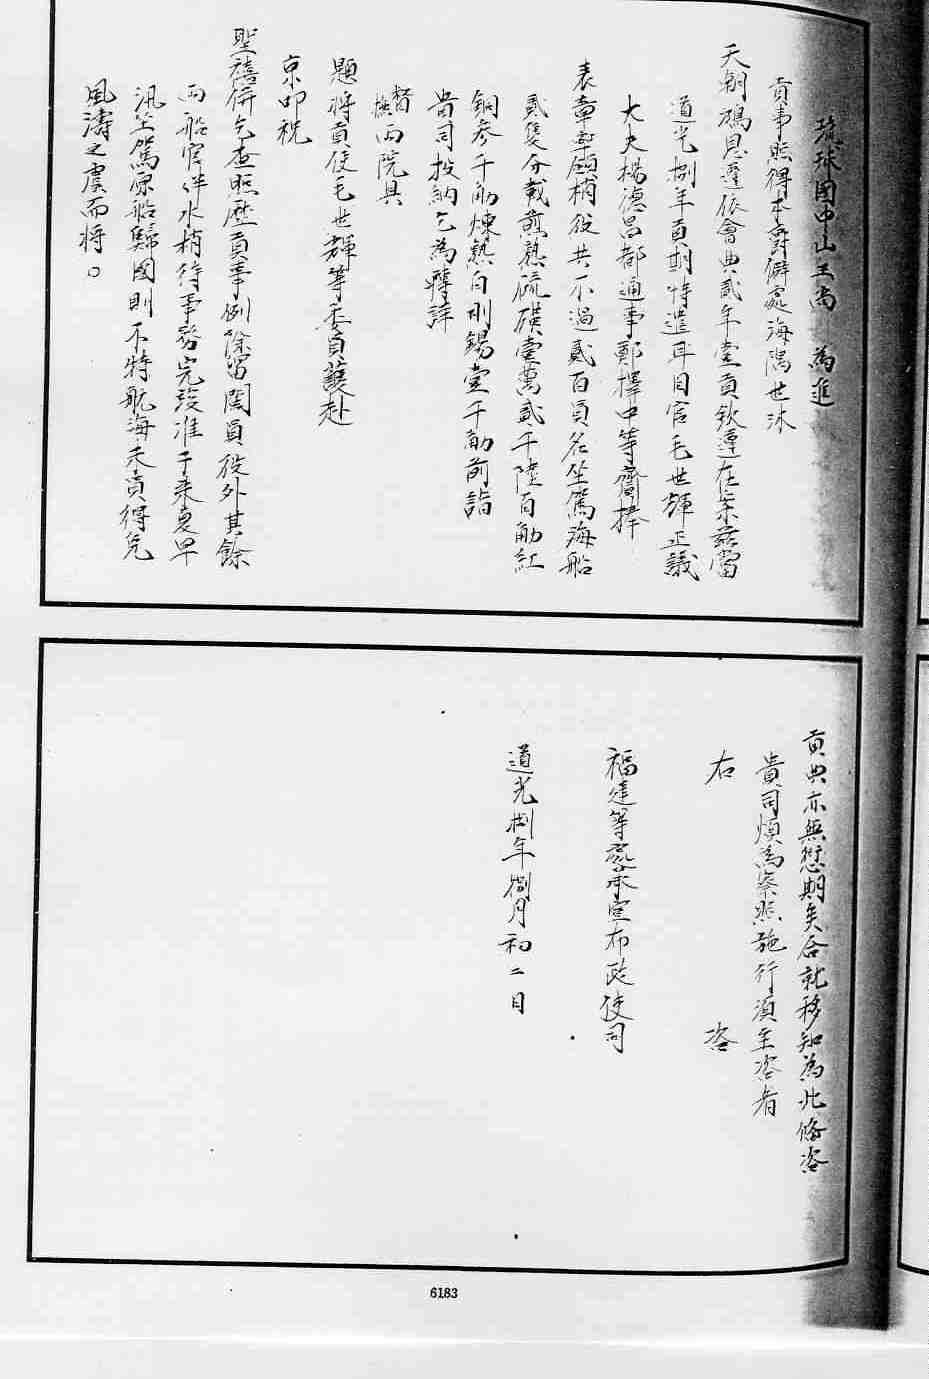 琉球國中山王尚　為進
貢事照得本爵僻處海隅世沐
天朝鴻恩遵依會典貳年壹貢欽遵在案茲當
道光捌年貢期特遣耳目官毛世輝正議
大夫楊德昌都通事鄭擇中等齎捧
表章率領梢役共不過貳百員名坐駕海船
貳隻分載煎熟硫磺壹萬貳千陸百觔紅
銅參千觔煉熟白剛錫壹千觔前詣
貴司投納乞為轉詳
督撫兩院具
題將貢使毛世輝等委員護赴
京叩祝
聖禧併乞查照歷貢事例除留閩員役外其餘
兩船官伴水梢待事務完竣准于來夏早
汛坐駕原船歸國則不特航海末員得免
風濤之虞而將。
貢典亦無愆期矣合就移知為此備咨
貴司煩為察照施行須至咨者
右　咨
福建等處承宣布政使司
道光捌年捌月初二日
6183